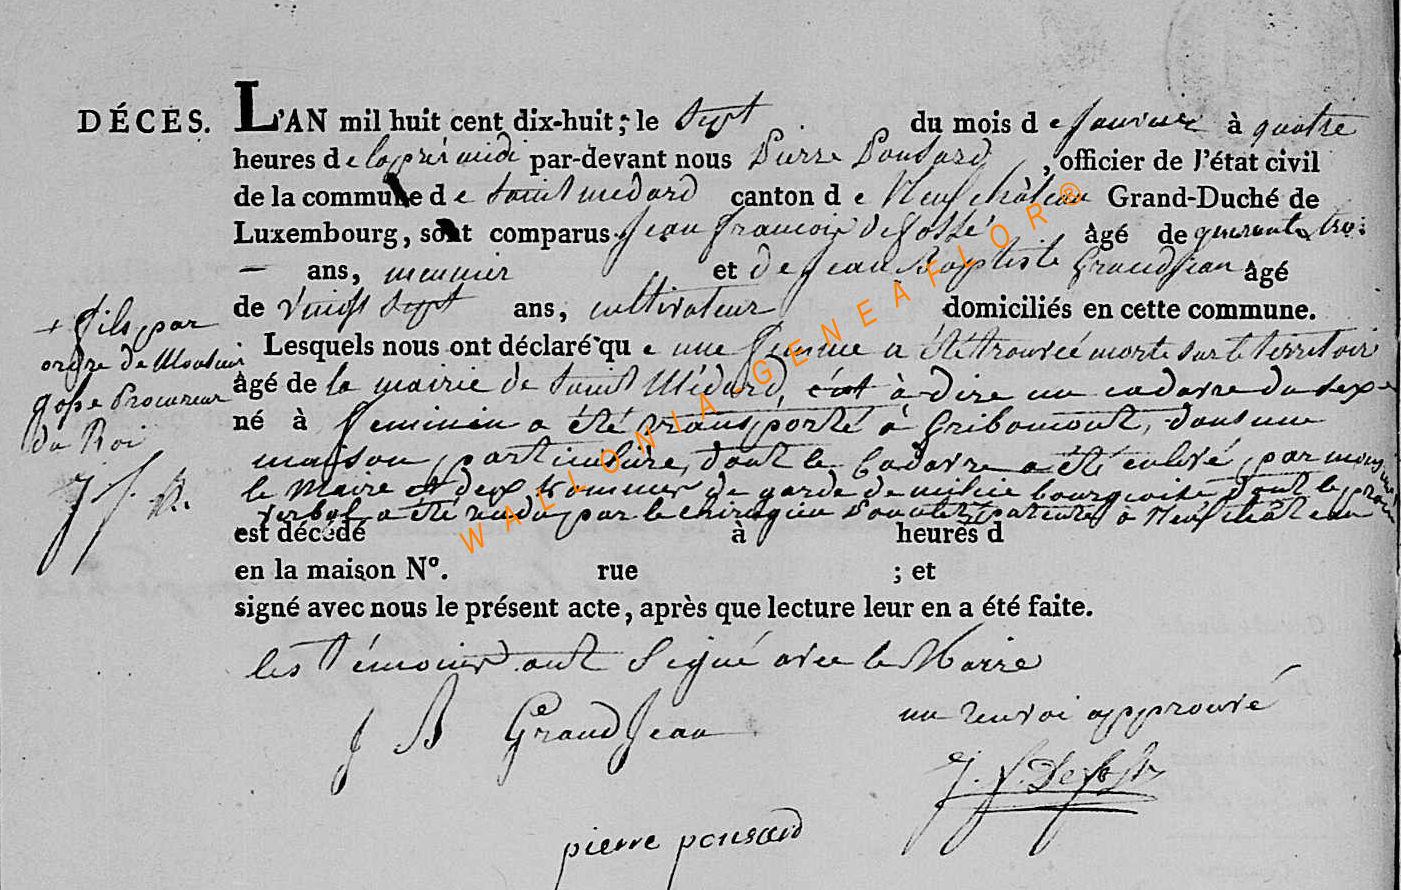 DÉCÈS. L'AN mil huit cent dix-huit, le sept du mois d e Janvier à quatre
heures d e laprés midi par-devant nous Pierre Ponsard, officier de l'état civil
de la commune d e Saint medard canton d e Neufchâteau Grand-Duché de
Luxembourg, sont comparus Jean francois Defossé âgé de quarante trois
— ans, meunier et de Jean Baptiste Grandjean âgé
de Vingt Sept ans, cultivateur domiciliés en cette commune.
Lesquels nous ont déclaré qu e une femme a été trouveé morte sur le territoir
âgé de la mairie de Saint Médard, c'est à dire un cadavre du sexe
né à feminin a été transporté à Gribomont, dans une
maison particulière, dont le Cadavre a été enlevé par mons
le Maire et deux hommes de garde de milice bourgeoise dont le procès
verbal a été rendu par le chirurgien à Neufchâteau
est décédé à heures d
en la maison N°. rue ; et
signé avec nous le présent acte, après que lecture leur en a été faite.
+ fils par
ordre de Monsieur
Procureur
du Roi
les témoins ont Signé avec le Maire
J B GrandJean
un renvoi approuvé
J. f. Defossé
pierre ponsard
WALLONIA-GENEAFLOR®